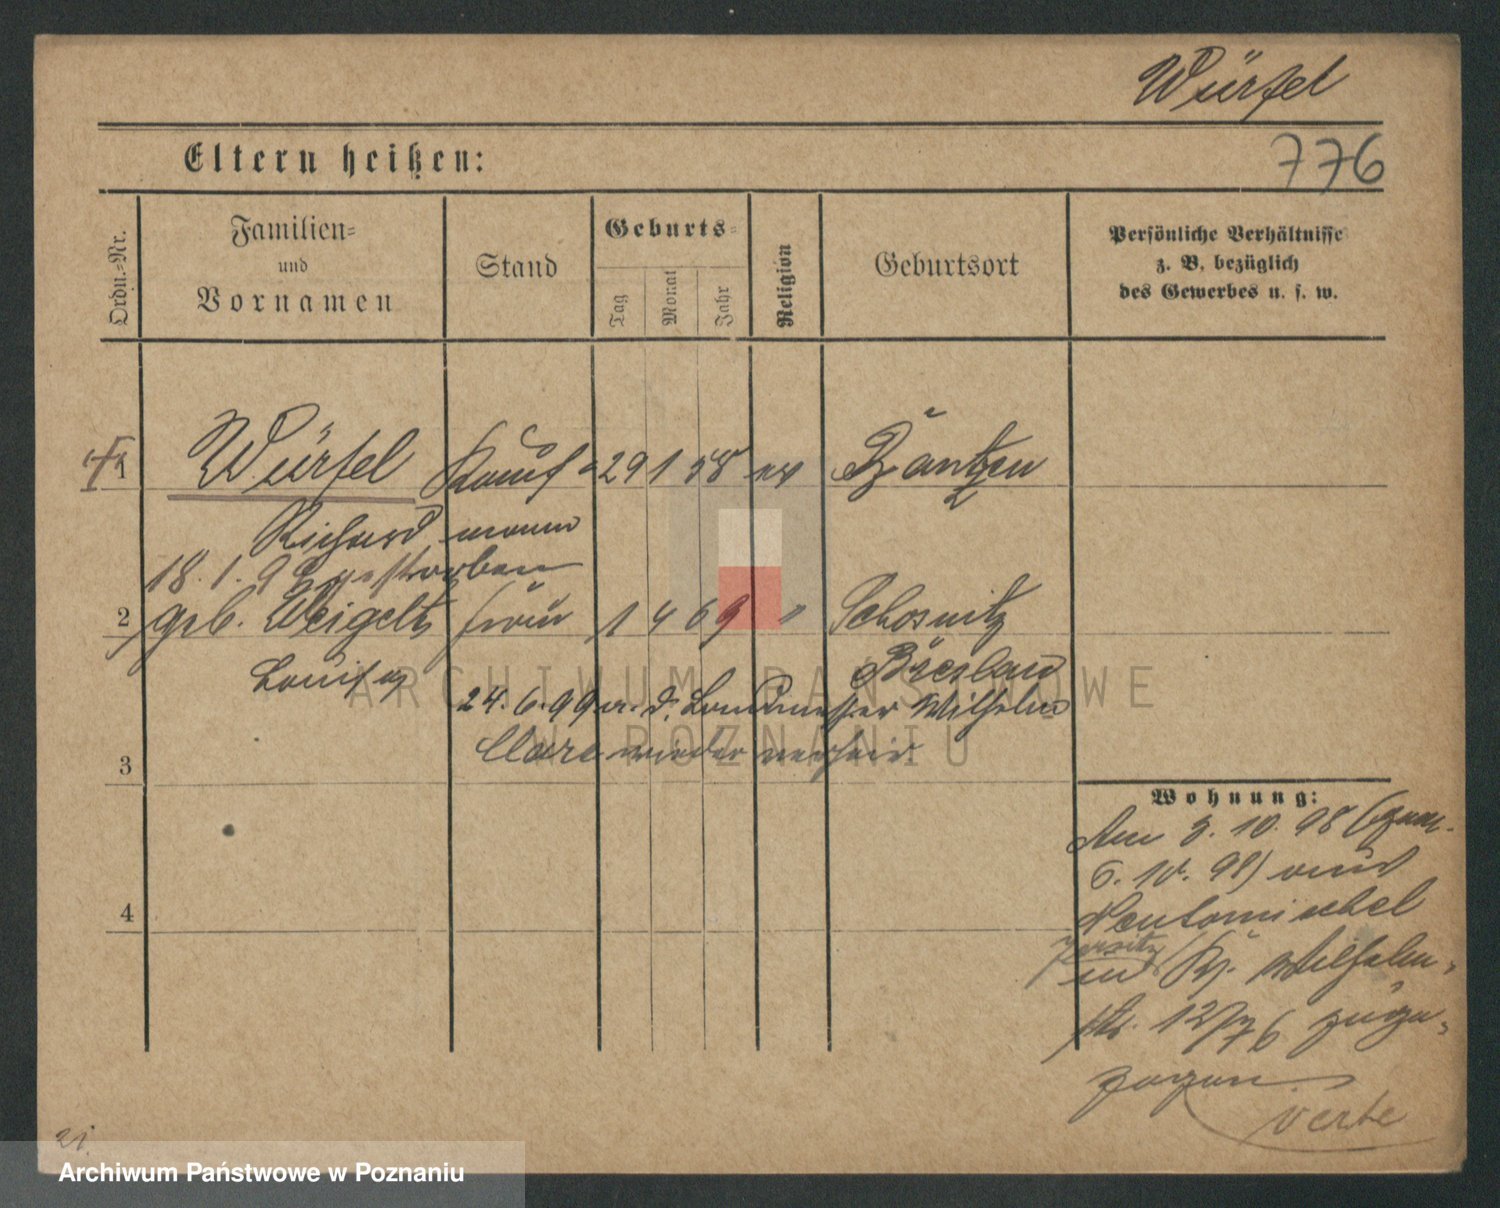 Würfel
Eltern heißen:
776
Ordn.=Nr.
Familien=
und
Vornamen
Stand
Geburts=
Tag
Monat
Jahr
Religion
Geburtsort
Persönliche Verhältnisse
z. B. bezüglich
des Gewerbes u. s. w.
1 Würfel Kauf= 29 1 58 ev
Richard mann
18. 1. gestorben
2 geb. Weigelt frau 1 4 69 " Schosnitz
Louise Breslau
24. 6. 99 m. d. Landmesser Wilhelm
wieder verheir.
ARCHIWUM PAŃSTWOWE
W POZNANIU
3
Wohnung:
Am 3. 10. 98 (gem.
6. 10. 98) von
Neutomischel
Jersitz
in Wilhelm=
str. zuge=
zogen
4
verte
21.
Archiwum Państwowe w Poznaniu